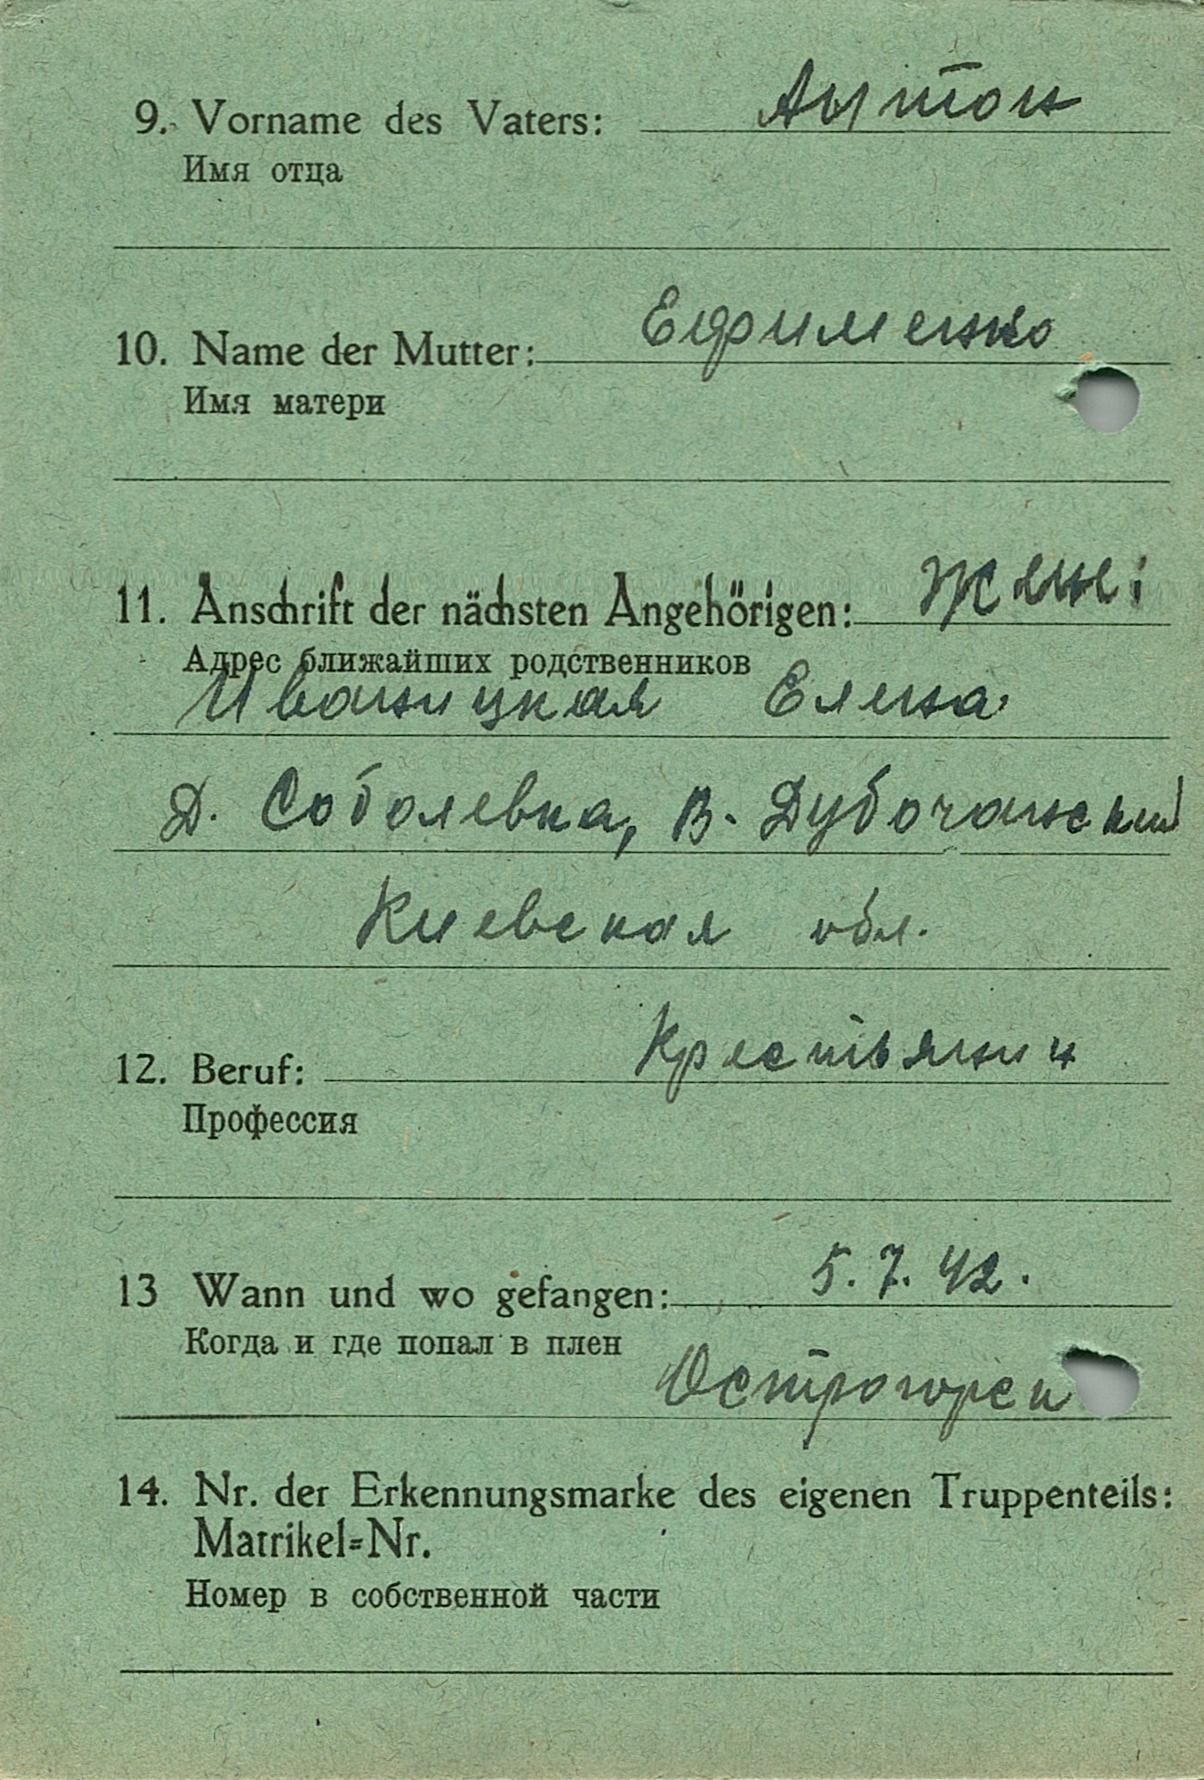 9. Vorname des Vaters: Антон
Имя отца
10. Name der Mutter: Ефименко
Имя матери
11. Anschrift der nächsten Angehörigen: Жене:
Адрес ближайших родственников
Иваницкая Елена
Д. Соболевка, В. Дубочанский
Киевская обл.
12. Beruf: Крестьянин
Профессия
13 Wann und wo gefangen: 5.7.42.
Когда и где попал в плен
Острогорск
14. Nr. der Erkennungsmarke des eigenen Truppenteils:
Matrikel=Nr.
Номер в собственной части